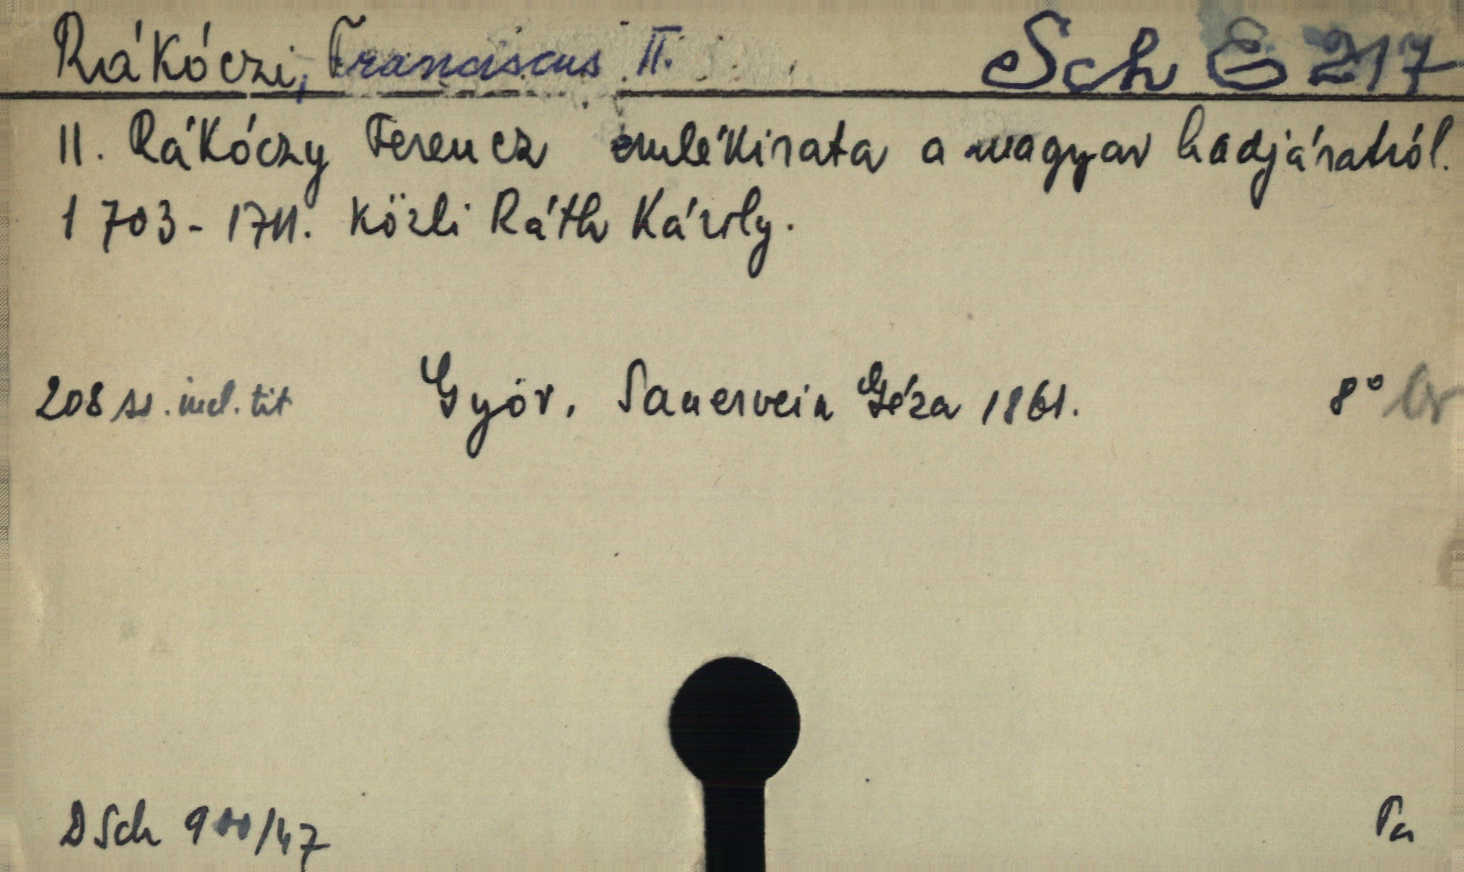 Rákóczi, Franciscus II. Sch E 217
II. Rákóczy Ferencz emlékirata a magyar hadjáratról.
1703-1711. Közli Ráth Károly.
208 ss. incl. tit Győr, Sauervein Géza 1861. 8°
DSch 900/47 Pa